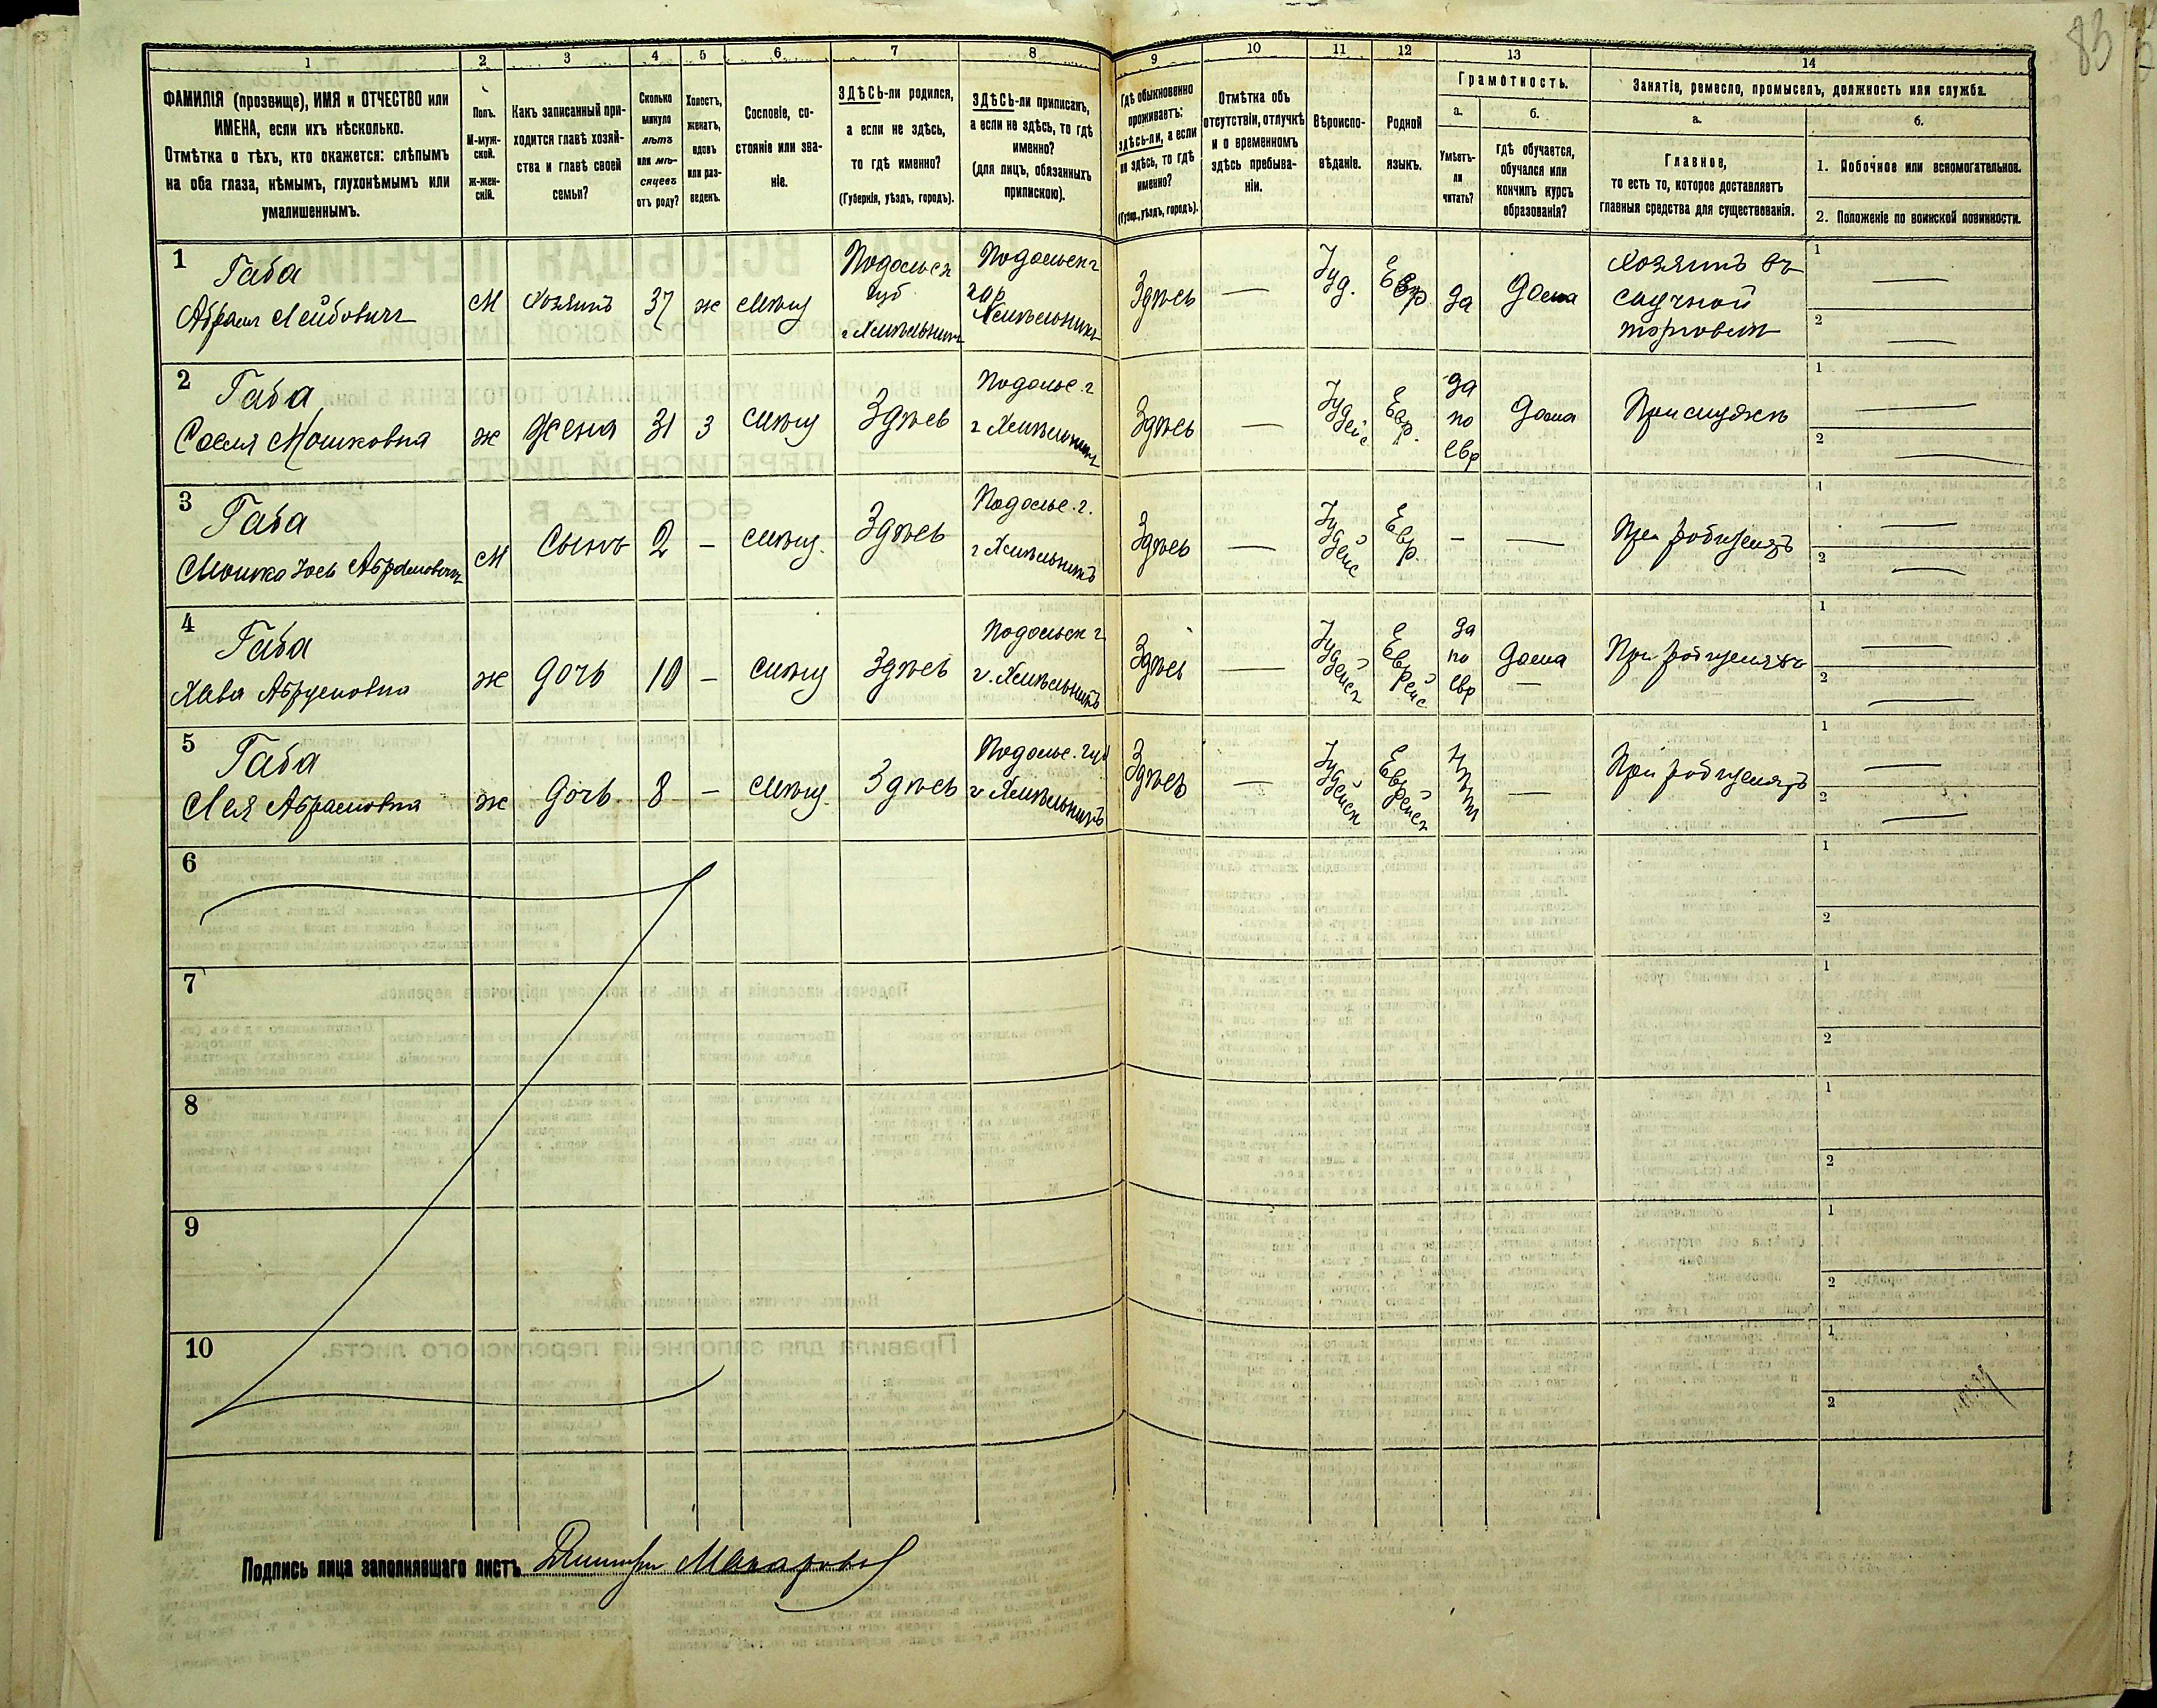 83
1 2 3 4 5 6 7 8 9 10 11 12 13 14
ФАМИЛІЯ (прозвище), ИМЯ и ОТЧЕСТВО или
ИМЕНА, если ихъ нѣсколько.
Отмѣтка о тѣхъ, кто окажется: слѣпымъ
на оба глаза, нѣмымъ, глухонѣмымъ или
умалишеннымъ.
Полъ.
М-муж-
ской.
Ж-жен-
скій.
Какъ записанный при-
ходится главѣ хозяй-
ства и главѣ своей
семьи?
Сколько
минуло
лѣтъ
или мѣ-
сяцевъ
отъ роду?
Холостъ,
женатъ,
вдовъ
или раз-
веденъ.
Сословіе, со-
стояніе или зва-
ніе.
ЗДѢСЬ-ли родился,
а если не здѣсь,
то гдѣ именно?
(Губернія, уѣздъ, городъ).
ЗДѢСЬ-ли приписанъ,
а если не здѣсь, то гдѣ
именно?
(для лицъ, обязанныхъ
припискою).
Гдѣ обыкновенно
проживаетъ:
здѣсь-ли, а если
не здѣсь, то гдѣ
именно?
(Губер., уѣздъ, городъ).
Отмѣтка объ
отсутствіи, отлучкѣ
и о временномъ
здѣсь пребыва-
ніи.
Вѣроиспо-
вѣданіе.
Родной
языкъ.
Грамотность.
а.
Умѣетъ-
ли
читать?
б.
гдѣ обучается,
обучался или
кончилъ курсъ
образованія?
Занятіе, ремесло, промыселъ, должность или служба.
а.
Главное,
то есть то, которое доставляетъ
главныя средства для существованія.
б.
1. Побочное или вспомогательное.
2. Положеніе по воинской повинности.
1
Габа
Абрам Лейбович
М
Хозяинъ
37
ж
Мѣщ
Подольск
губ
г Хмѣльникъ
Подольск г
гор
Хмѣльникъ
Здѣсь
—
Іуд.
Евр
да
дома
Хозяинъ въ
1 —
2 —
2
Габа
Мошковна
ж
Жена
31
З
Мѣщ
Здѣсь
Подольс. г
г Хмѣльникъ
Здѣсь
—
Іудейс
Евр.
да
по
евр
дома
При мужѣ
1 —
2 —
3
Габа
Мошко Іось Абрамович
М
Сынъ
2
–
мѣщ.
Здѣсь
Подольс. г.
г Хмѣльникъ
Здѣсь
—
Іудейс
Евр.
–
—
При родителяхъ
1 —
2 —
4
Габа
Хава Абрамовна
ж
дочь
10
–
мѣщ
Здѣсь
Подольск г
г. Хмѣльникъ
Здѣсь
—
Іудейск
Еврейс
да
по
евр
дома
—
При родителяхъ
1 —
2 —
5
Габа
Лея Абрамовна
ж
дочь
8
–
мѣщ.
Здѣсь
Подольс. губ
г Хмѣльникъ
Здѣсь
—
Іудейск
Еврейск
Нѣтъ
—
При родителяхъ
1 —
2 —
6
1
2
7
1
2
8
1
2
9
1
2
10
1
2
Подпись лица заполнявшаго листъ Дмитри